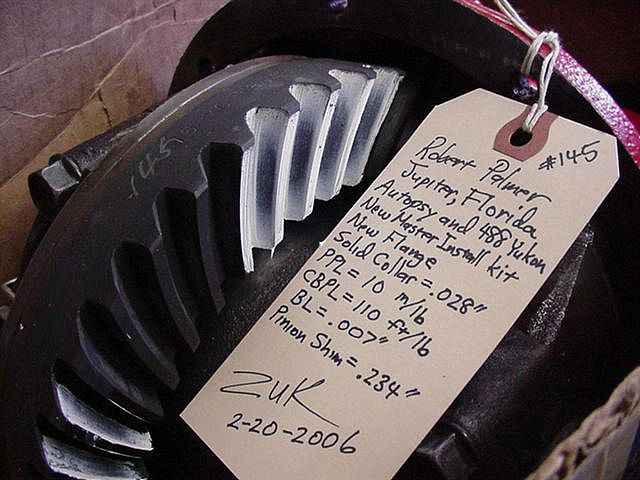 #145
Robert Palmer
Jupiter, Florida
Autopsy and 488 Yukon
New Master Install kit
New Flange
Solid Collar = .028"
PPL = 10 m/lb
CBPL = 110 ft/lb
BL = .007"
Pinion Shim = .234"
ZUK
2-20-2006
145